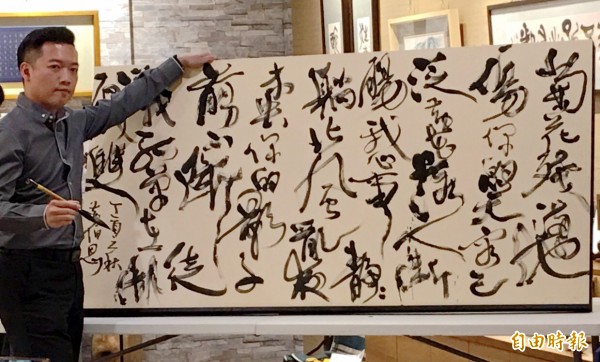 菊花殘滿地
傷你的笑容已
泛黃花落人斷
腸我心事靜
躺北風亂夜
未央你的影子
剪不斷徒
留我孤單在湖
面成雙
丁酉之秋
自由時報